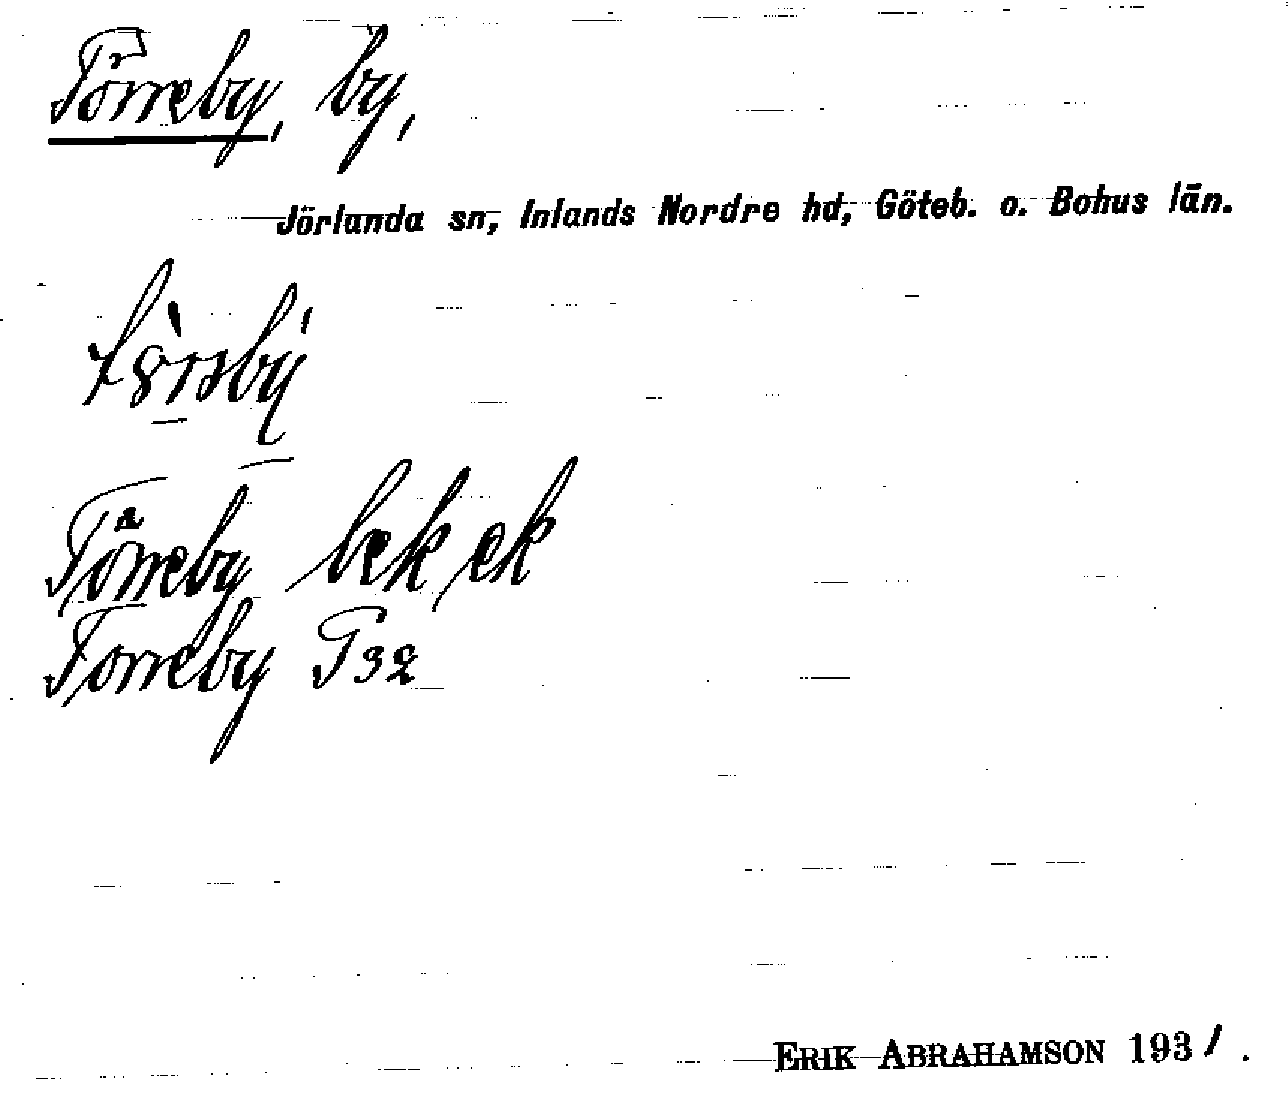 Törreby, by,
Jörlanda sn, Inlands Nordre hd, Göteb. o. Bohus län.
Törreby bek, ek
Torreby T 32
ERIK ABRAHAMSON 1931.